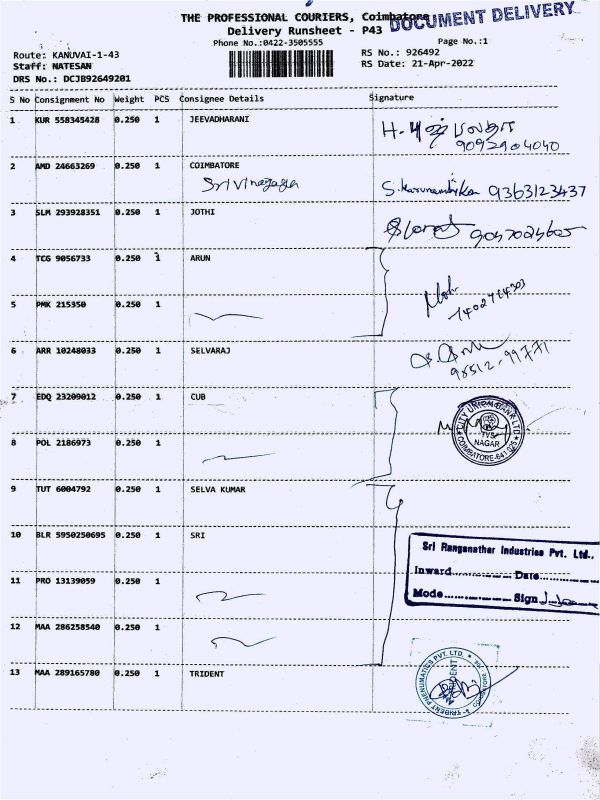 THE PROFESSIONAL COURIERS, Coimbatore
DOCUMENT DELIVERY
Delivery Runsheet - P43
Phone No.:0422-3505555
Page No.:1
Route: KANUVAI-1-43
RS No.: 926492
Staff: NATESAN
RS Date: 21-Apr-2022
DRS No.: DCJB92649201
S No Consignment No Weight PCS Consignee Details Signature
1 KUR 558345428 0.250 1 JEEVADHARANI
9092904040
2 AMD 24663269 0.250 1 COIMBATORE
Srivinagaga S.Karunambika 9363123437
3 SLM 293928351 0.250 1 JOTHI
4 TCG 9056733 0.250 1 ARUN
5 PMK 215350 0.250 1
6 ARR 10248033 0.250 1 SELVARAJ
98512-99771
7 EDQ 23209012 0.250 1 CUB
CITY UNION BANK LTD.
TVS
NAGAR
COIMBATORE-641 025
8 POL 2186973 0.250 1
9 TUT 6004792 0.250 1 SELVA KUMAR
10 BLR 5950250695 0.250 1 SRI
Sri Ranganathar Industries Pvt. Ltd.,
Inward.............. Date..............
11 PRO 13139059 0.250 1
Mode.............. Sign
12 MAA 286258540 0.250 1
13 MAA 289165780 0.250 1 TRIDENT
TRIDENT PNEUMATICS PVT. LTD.